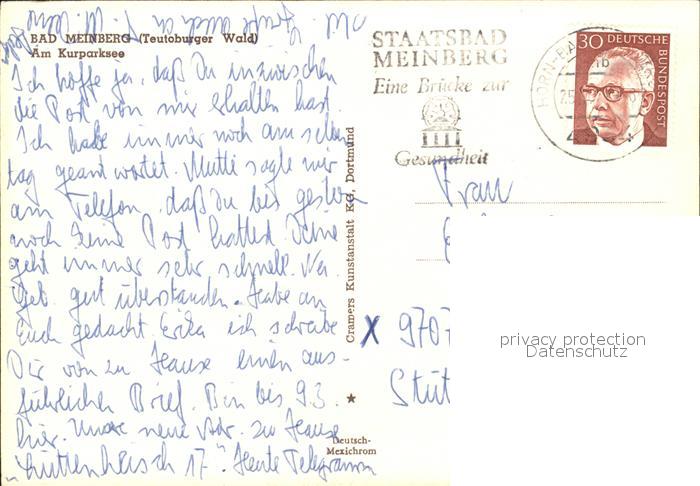 BAD MEINBERG (Teutoburger Wald)
Am Kurparksee
Ich hoffe ja, daß Du inzwischen
die Post von mir erhalten hast.
Ich habe immer noch am selben
tag geantwortet. Mutti sagte mir
am Telefon, daß Du bis gestern
noch keine Post hattest. Deine
geht immer sehr schnell.
gut überstanden. Habe an
Euch gedacht. Erika ich schreibe
Dir von zu Hause einen aus-
führlichen Brief. Bin bis 9.3.
hier. Unsere neue Adr. zu Hause
17". Heute Telegramm
Cramers Kunstanstalt KG, Dortmund
★
Deutsch-
Mexichrom
STAATSBAD
MEINBERG
Eine Brücke zur
Gesundheit
HORN-BA
30 DEUTSCHE
BUNDESPOST
Frau
X 9707
Stüt
privacy protection
Datenschutz